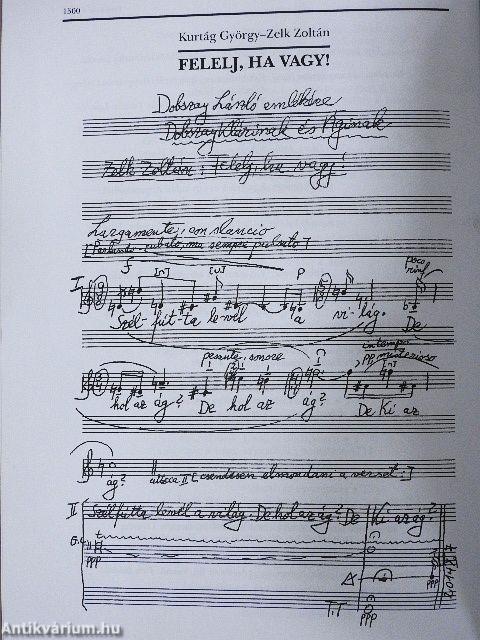 1500
Kurtág György–Zelk Zoltán
FELELJ, HA VAGY!
Dobszay László emlékére
Dobszay Klárinak és Áginak
Zelk Zoltán: Felelj, ha vagy!
Largamente, con slancio
[Parlando-rubato, ma sempre pulsato]
f [n] [u] p poco rinf
I
Szél-fút-ta le-vél a vi-lág. De
pesante, smorz in tempo pp misterioso
hol az ág? De hol az ág? De Ki az
ág? attacca II [csendesen elmondani a verset:]
II Szélfútta levél a világ. De hol az ág? De Ki az ág?
G.c. ppp
ppp
T.T ppp
Antikvárium.hu